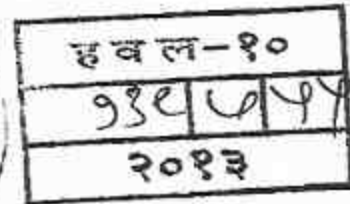 हवल-१०
१३९ ७ ५५
२०१३